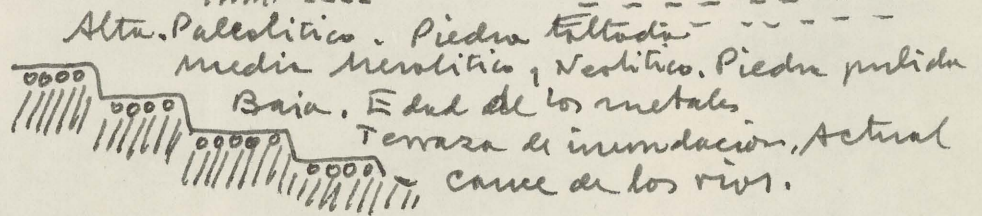 Alta. Paleolitico. Piedra tallada
Media Mesolitico, Neolitico. Piedra pulida
Baja. Edad de los metales
Terraza de inundación, Actual
cauce de los rios.